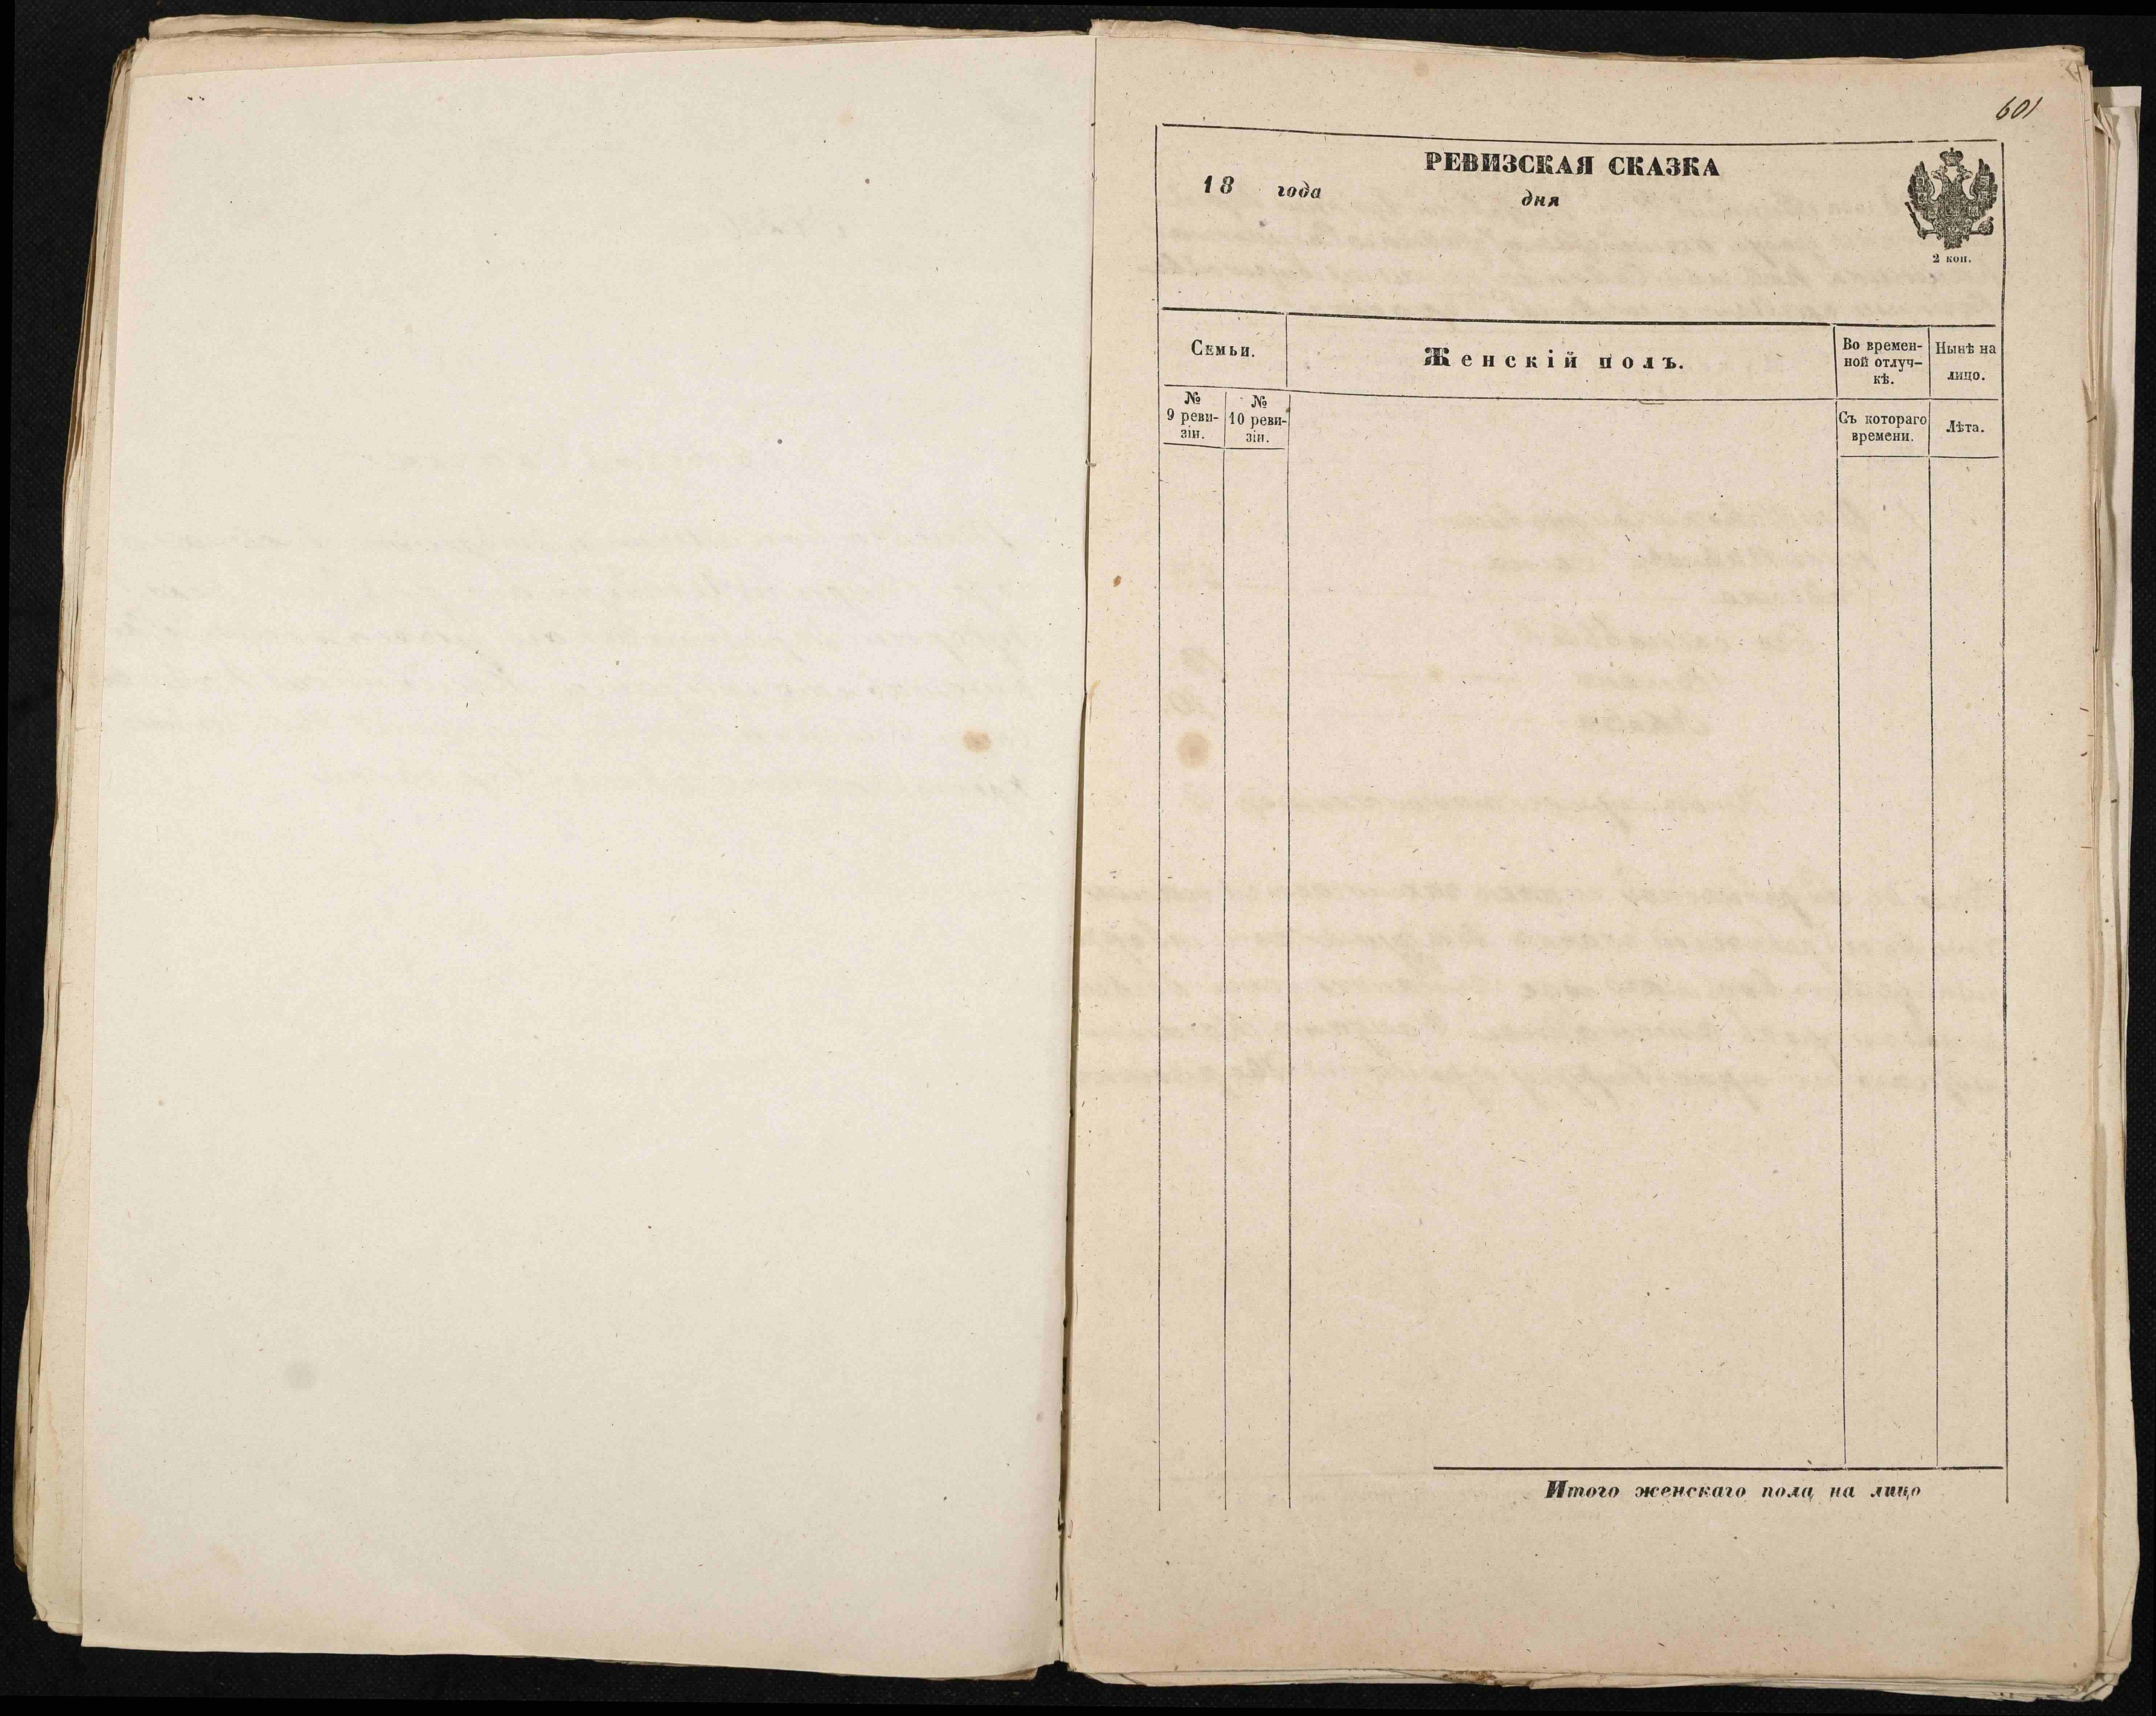 601
РЕВИЗСКАЯ СКАЗКА
18 года дня
2 коп.
Семьи.
Женскій полъ.
Во времен-
ной отлуч-
кѣ.
Нынѣ на
лицо.
№
9 реви-
зіи.
№
10 реви-
зіи.
Съ котораго
времени.
Лѣта.
Итого женскаго пола на лицо